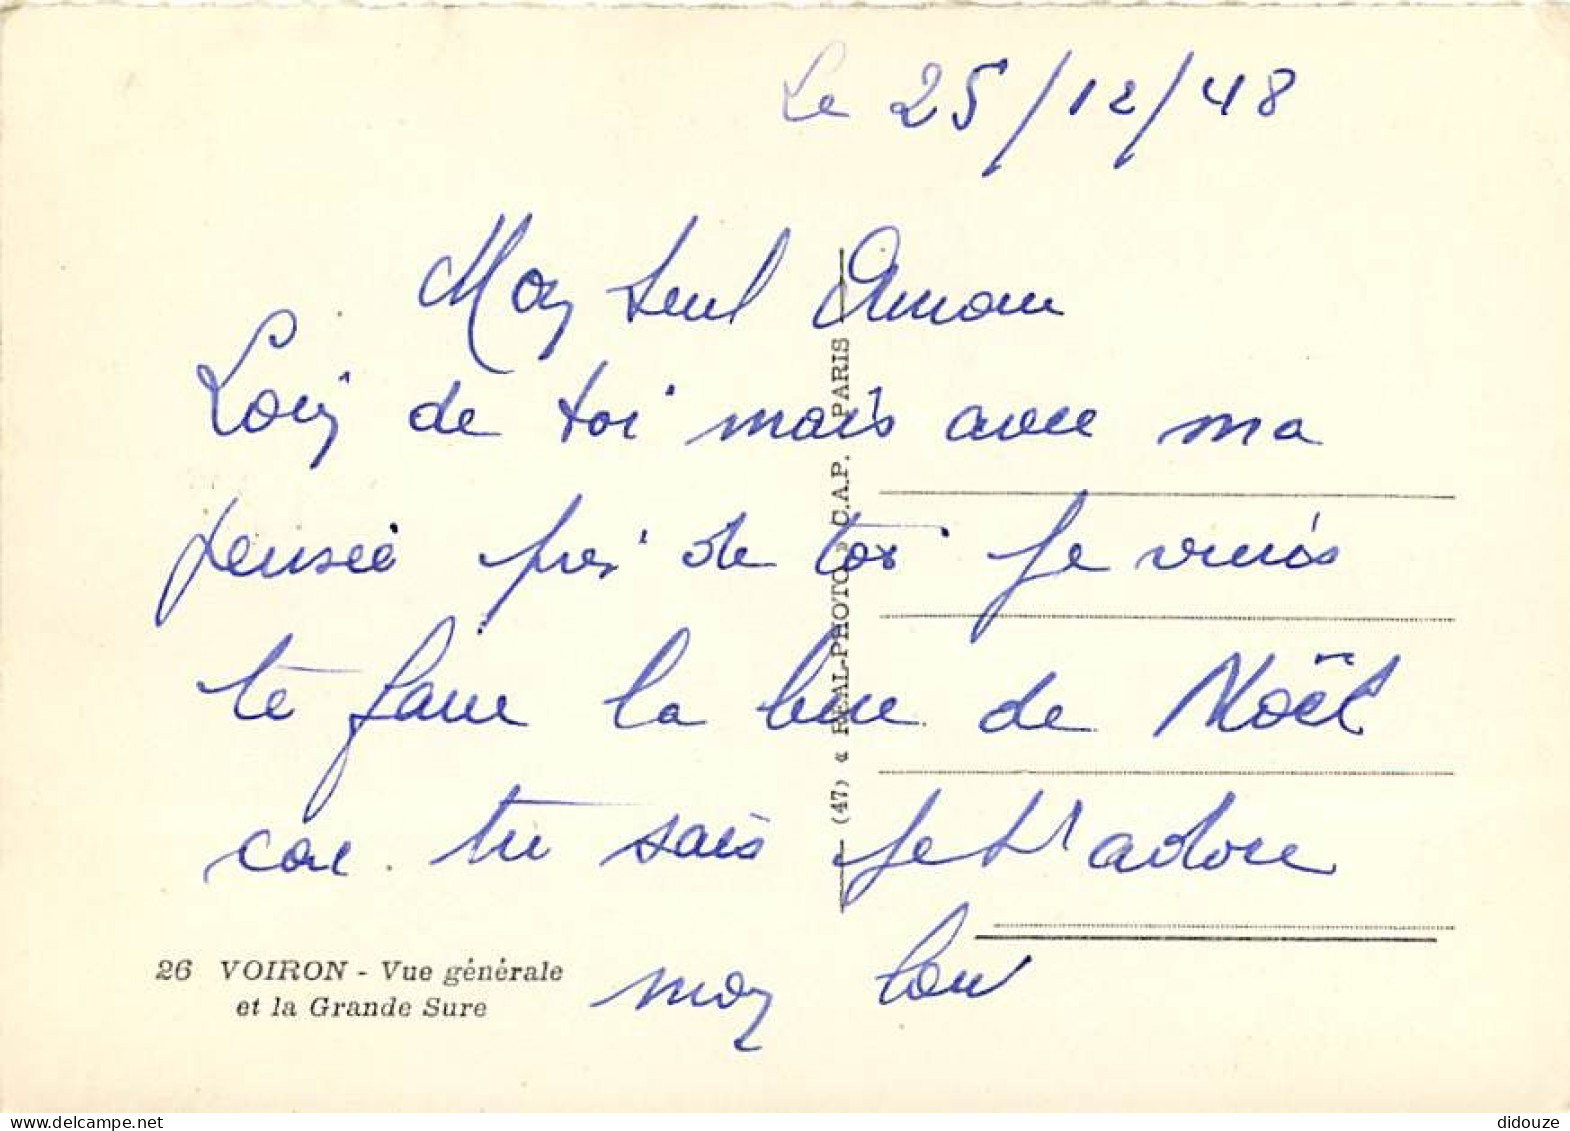 Le 25/12/48
Mon seul Amour
Loin de toi mais avec ma
pensée près de toi je viens
te faire la bise de Noël
car tu sais je t'adore
mon lou
26 VOIRON - Vue générale
et la Grande Sure
(47) « REAL-PHOTO » C.A.P. PARIS
didouze